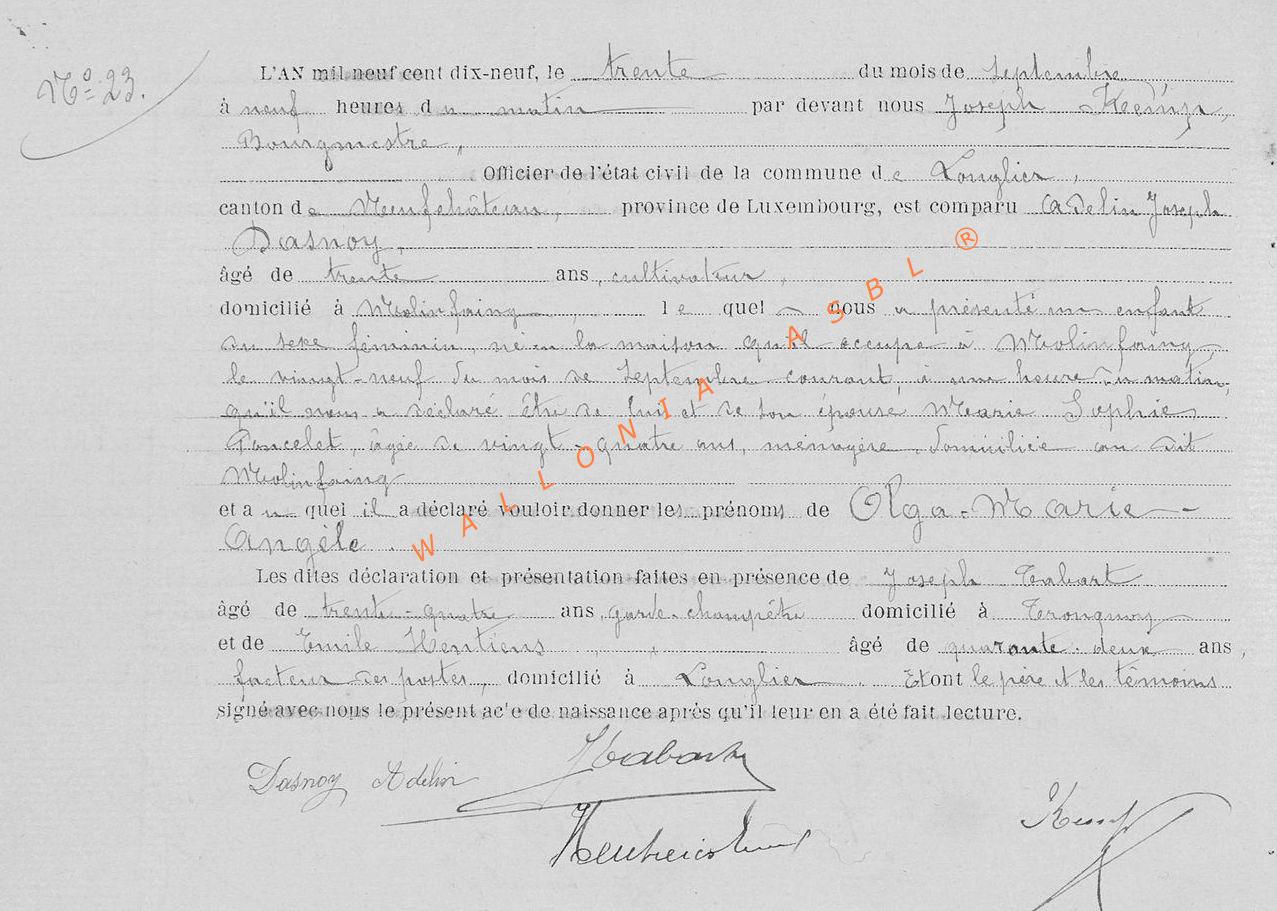 N° 23.
L'AN mil neuf cent dix-neuf, le trente du mois de septembre
à neuf heures du matin par devant nous Joseph
Bourgmestre,
Officier de l'état civil de la commune de Longlier,
canton de Neufchâteau, province de Luxembourg, est comparu Adelin Joseph
Dasnoy,
âgé de trente ans, cultivateur,
domicilié à Molinfaing, lequel nous a présenté un enfant
du sexe féminin, né en la maison qu'il occupe à Molinfaing,
le vingt-neuf du mois de Septembre courant, à une heure du matin,
qu'il nous a déclaré être de lui et de son épouse Marie Sophie
Poncelet, âgée de vingt-quatre ans, ménagère, domiciliée au dit
Molinfaing
et auquel il a déclaré vouloir donner les prénoms de Olga-Marie-
Angèle.
Les dites déclaration et présentation faites en présence de Joseph Tabart
âgé de trente-quatre ans, garde-champêtre domicilié à Tronquoy
et de Emile Hentiens, âgé de quarante-deux ans,
facteur des postes, domicilié à Longlier. Et ont le père et les témoins
signé avec nous le présent acte de naissance après qu'il leur en a été fait lecture.
Dasnoy Adelin JTabart
WALLONIA ASBL ®